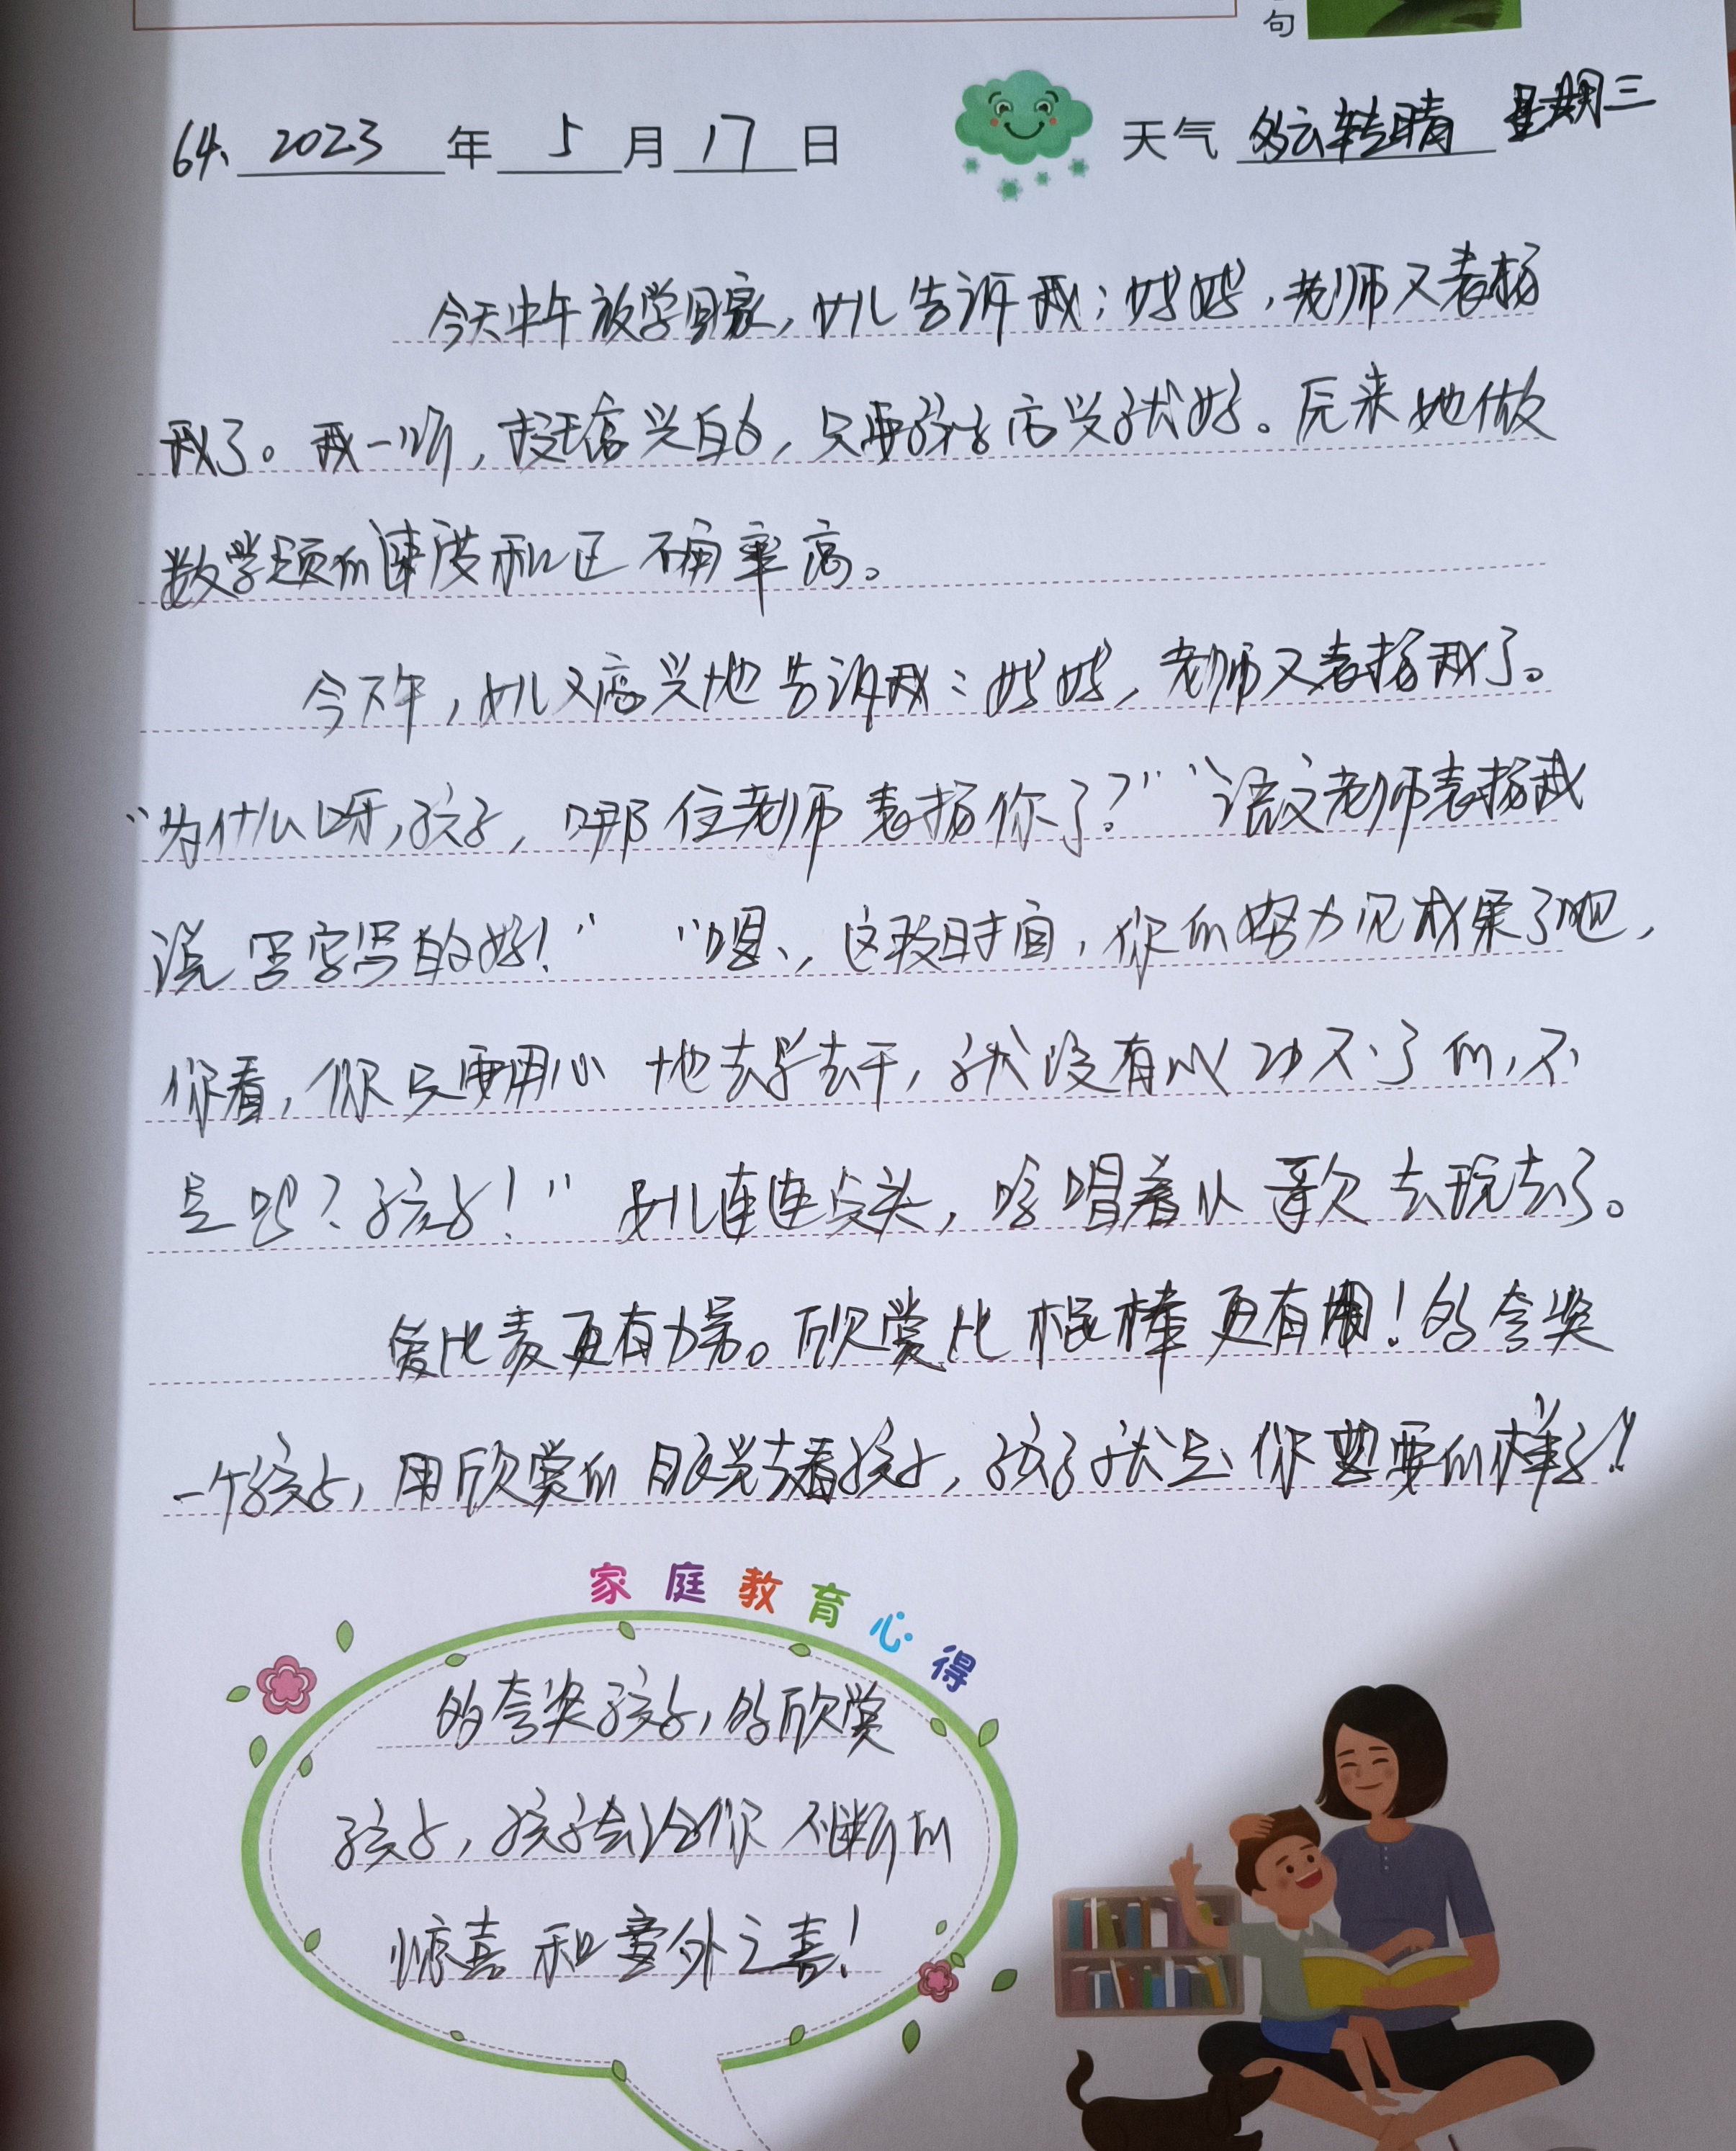 句
64、2023年5月17日 天气 多云转晴 星期三
今天中午放学回家，女儿告诉我：妈妈，老师又表扬
我了。我一听，挺高兴的，只要孩子高兴就好。原来她做
数学题的速度和正确率高。
今下午，女儿又高兴地告诉我：妈妈，老师又表扬我了。
“为什么呀，孩子，哪位老师表扬你了？”“语文老师表扬我
说写字写的好！”“嗯、，这段时间，你的努力见成果了吧，
你看，你只要用心地去学去干，就没有成功不了的，不
是吗？孩子！”女儿连连点头，哼唱着儿歌去玩去了。
爱比责更有力量。欣赏比棍棒更有用！多夸奖
一个孩子，用欣赏的眼光去看孩子，孩子就是你想要的样子！
家庭教育心得
多夸奖孩子，多欣赏
孩子，孩子会给你不断的
惊喜和意外之喜！